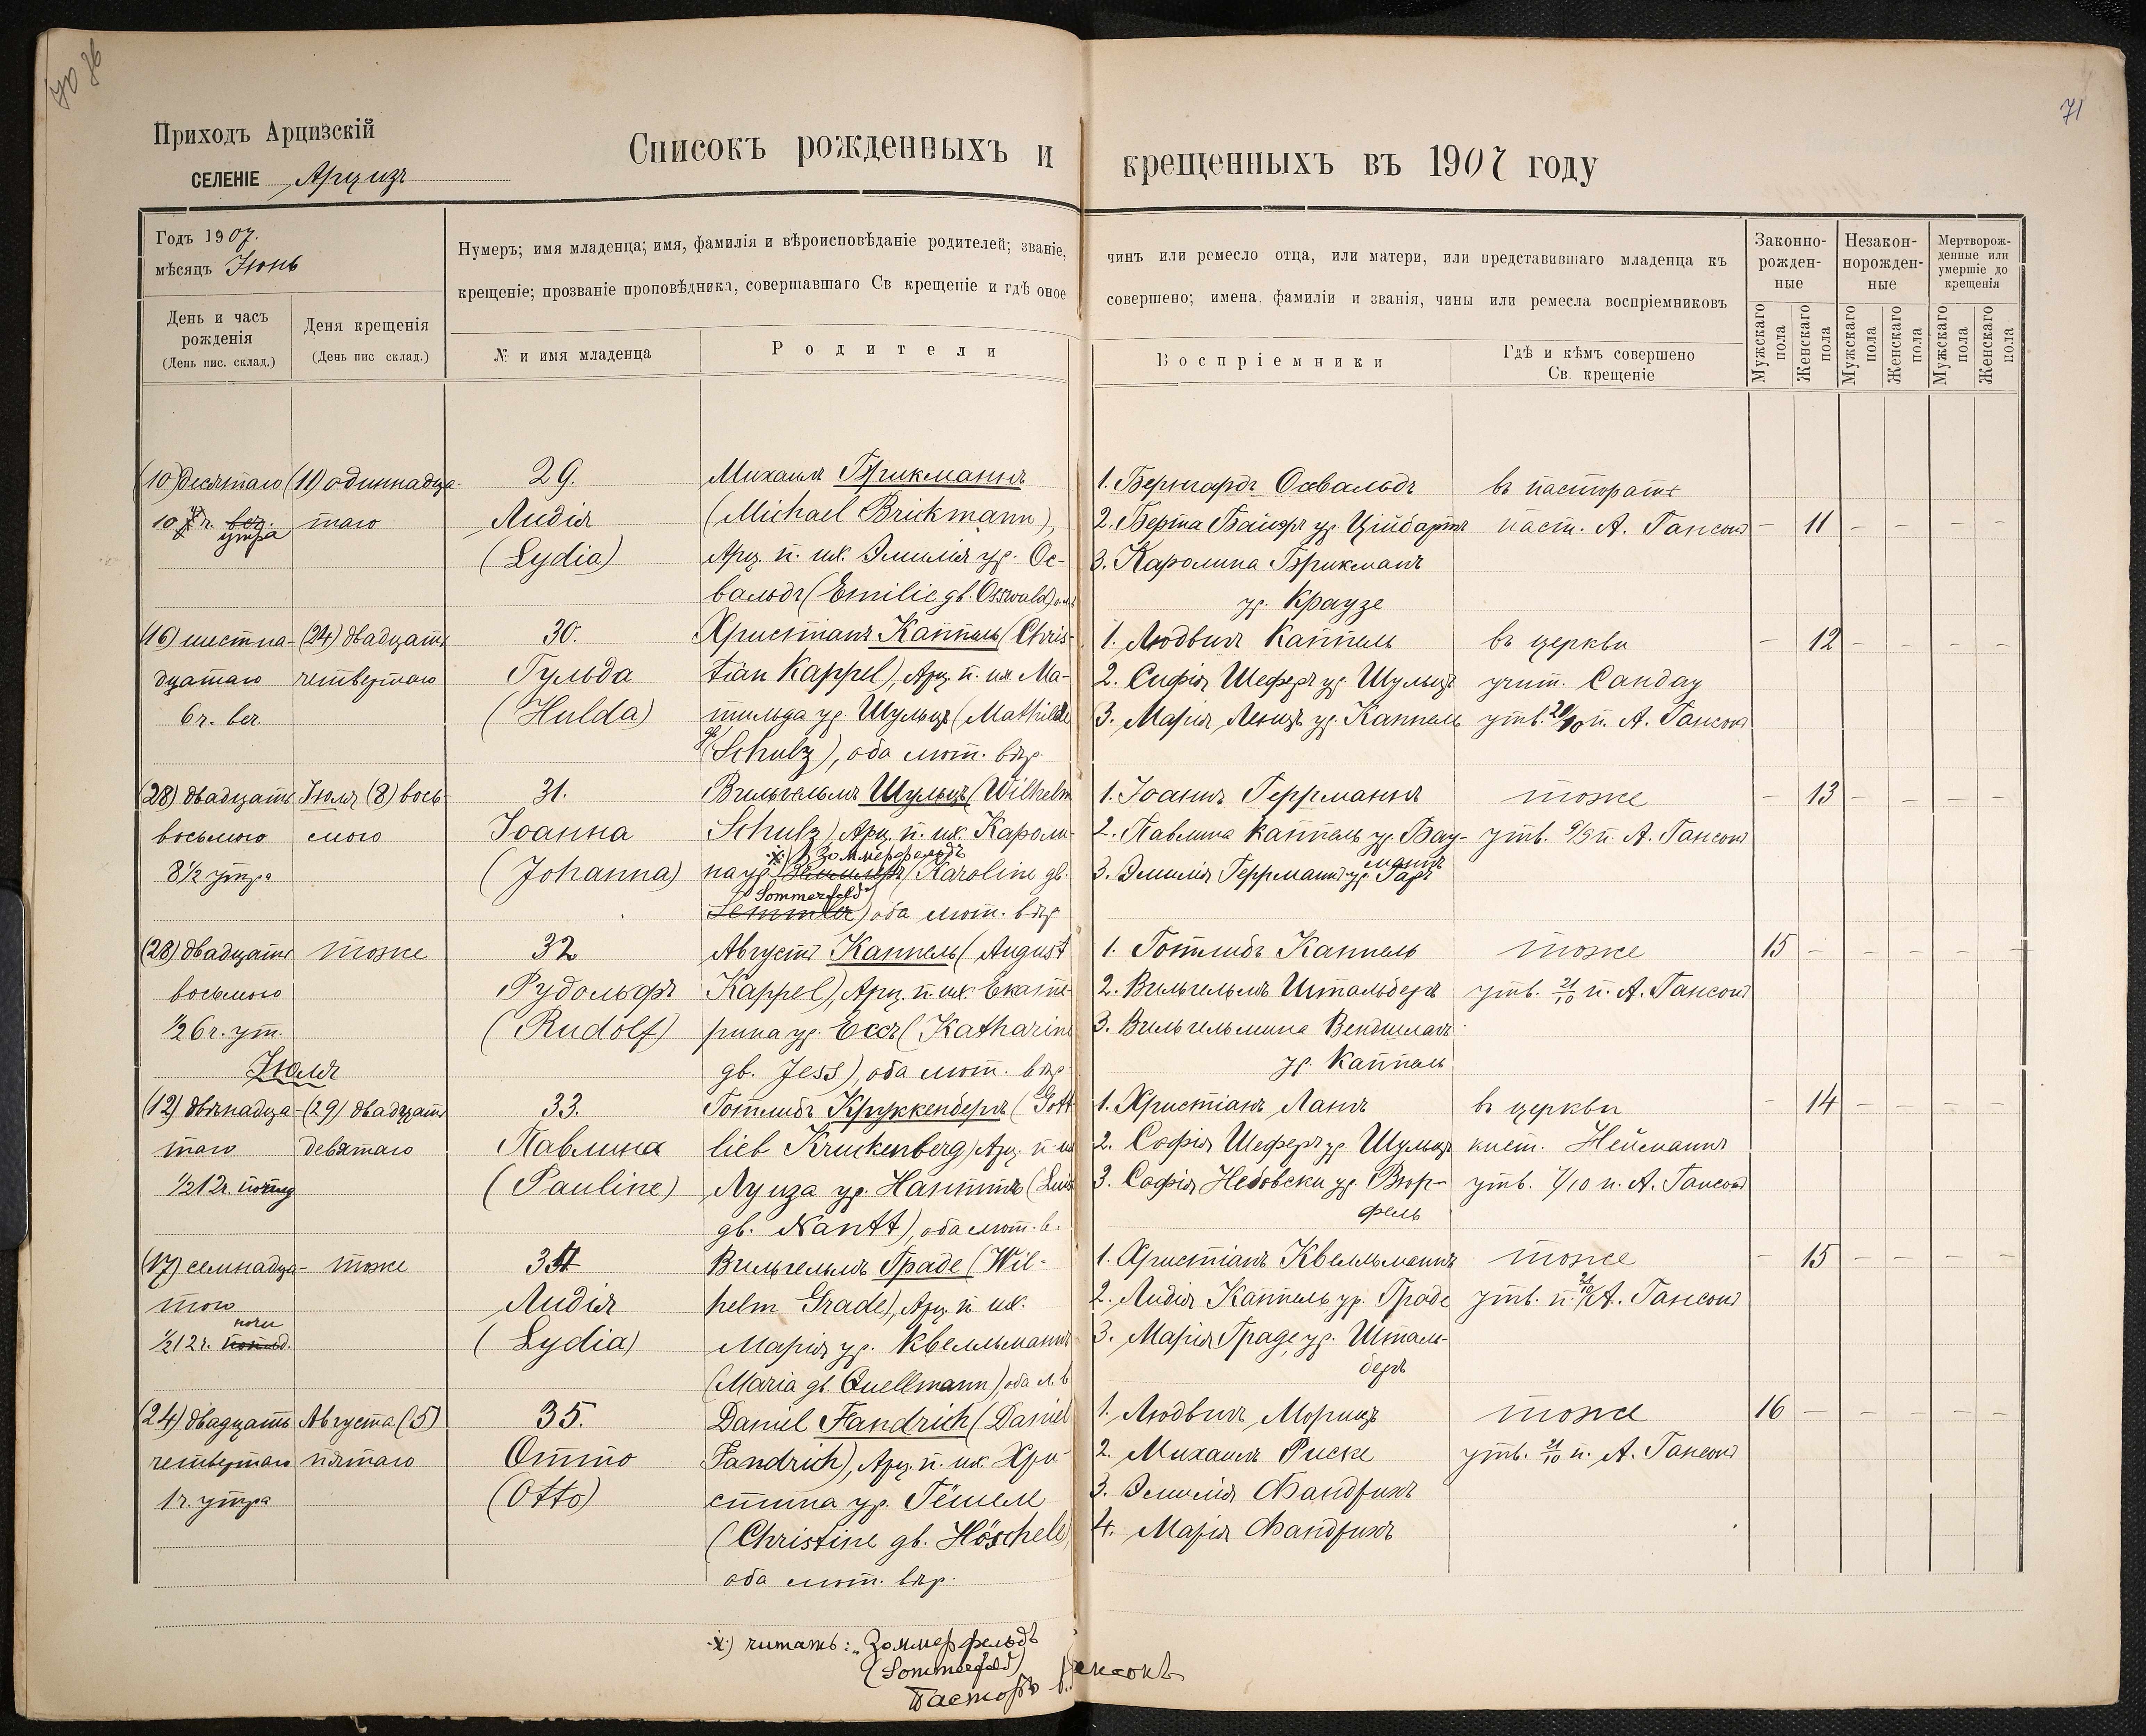 70 об
71
Приходъ Арцизскій
СЕЛЕНІЕ Арцизъ
Списокъ рожденныхъ и крещенныхъ въ 1907 году
Годъ 1907.
мѣсяцъ Іюнь
Нумеръ; имя младенца; имя, фамилія и вѣроисповѣданіе родителей; званіе, чинъ или ремесло отца, или матери, или представившаго младенца къ
крещеніе; прозваніе проповѣдника, совершавшаго Св крещеніе и гдѣ оное совершено; имена, фамиліи и званія, чины или ремесла воспріемниковъ
Законно-
рожден-
ные
Незакон-
норожден-
ные
Мертворож-
денные или
умершіе до
крещенія
День и часъ
рожденія
(День пис. склад.)
Деня крещенія
(День пис склад.)
№ и имя младенца
Родители
Воспріемники
Гдѣ и кѣмъ совершено
Св. крещеніе
Мужскаго пола
Женскаго пола
Мужскаго пола
Женскаго пола
Мужскаго пола
Женскаго пола
(10) десятаго
10 ч. веч.
утра
(11) одиннадца-
таго
29.
Лидія
(Lydia)
Михаилъ Брикманнъ
(Michael Brickmann),
Арц. п. иж. Эмилія ур. Ос-
вальдъ (Emilie gb. Osswald)
1. Бернгардъ Освальдъ
2. Берта Байеръ ур. Ційбартъ
3. Каролина Брикманъ
ур. Краузе
въ пасторатѣ
паст. А. Гансонъ
– 11 – – – –
(16) шестна-
дцатаго
6 ч. веч.
(24) двадцать
четвертаго
30.
Гульда
(Hulda)
Христіанъ Каппель (Chris-
tian Kappel), Арц. п. иж. Ма-
тильда ур. Шульцъ (Mathilde
gb. Schulz), оба лют. вѣр.
1. Людвигъ Каппель
2. Софія Шеферъ ур. Шульцъ
3. Марія Ленцъ ур. Каппель
въ церкви
учит. Сандау
утв. 21/10 п. А. Гансонъ
– 12 – – – –
(28) двадцать
восьмого
8 1/2 утра
Іюля (8) вось-
мого
31.
Іоанна
(Johanna)
Вильгельмъ Шульцъ (Wilhelm
Schulz), Арц. п. иж. Кароли-
на ур. ⁜) Зоммерфельдъ (Karoline gb.
Sommerfeld
Semmler) оба лют. вѣр
1. Іоаннъ Геррманнъ
2. Павлина Каппель ур. Бау-
манъ
3. Эмилія Геррманнъ ур.
тоже
утв. 9/9 п. А. Гансонъ
– 13 – – – –
(28) двадцать
восьмого
1/2 6 ч. ут.
тоже
32
Рудольфъ
(Rudolf)
Августъ Каппель (August
Kappel), Арц. п. иж. Екате-
рина ур. Ессъ (Katharine
gb. Jess), оба лют. вѣр
1. Готлибъ Каппель
2. Вильгельмъ Штальберъ
3. Вильгельмина Вендшлагъ
ур. Каппель
тоже
утв. 21/10 п. А. Гансонъ
15 – – – – –
Іюля
(12) двѣнадца-
таго
1/2 12 ч. попуд
(29) двадцать
девятаго
33.
Павлина
(Pauline)
Готлибъ Круккенбергъ (Gott-
lieb Kruckenberg) Арц. п. иж
Луиза ур. Нанттъ (Luise
gb. Nantt), оба лют. в.
1. Христіанъ Лангъ
2. Софія Шеферъ ур. Шульцъ
3. Софія Небовски ур. Вюр-
фель
въ церкви
кист. Нейманнъ
утв. 7/10 п. А. Гансонъ
– 14 – – – –
(17) семнадца-
того
1/2 12 ч. попуд.
ночи
тоже
34
Лидія
(Lydia)
Вильгельмъ Граде (Wil-
helm Grade), Арц. п. иж.
Марія ур. Квелльманнъ
(Maria gb. Quellmann), оба л. в
1. Христіанъ Квелльманнъ
2. Лидія Каппель ур. Граде
3. Марія Граде, ур. Шталь-
беръ
тоже
утв. п. 21/10 А. Гансонъ
– 15 – – – –
(24) двадцать
четвертаго
1 ч. утра
Августа (5)
пятаго
35.
Отто
(Otto)
Daniel Fandrich (Daniel
Fandrich), Арц. п. иж. Хри-
стина ур. Гёшеле
(Christine gb. Höschele)
оба лют. вѣр.
1. Людвигъ Морицъ
2. Михаилъ Риске
3. Эмилія Фандрихъ
4. Марія Фандрихъ
тоже
утв. 21/10 п. А. Гансонъ
16 – – – – –
⁜) читать: „Зоммерфельдъ
(Sommerfeld)
Пасторъ Гансонъ